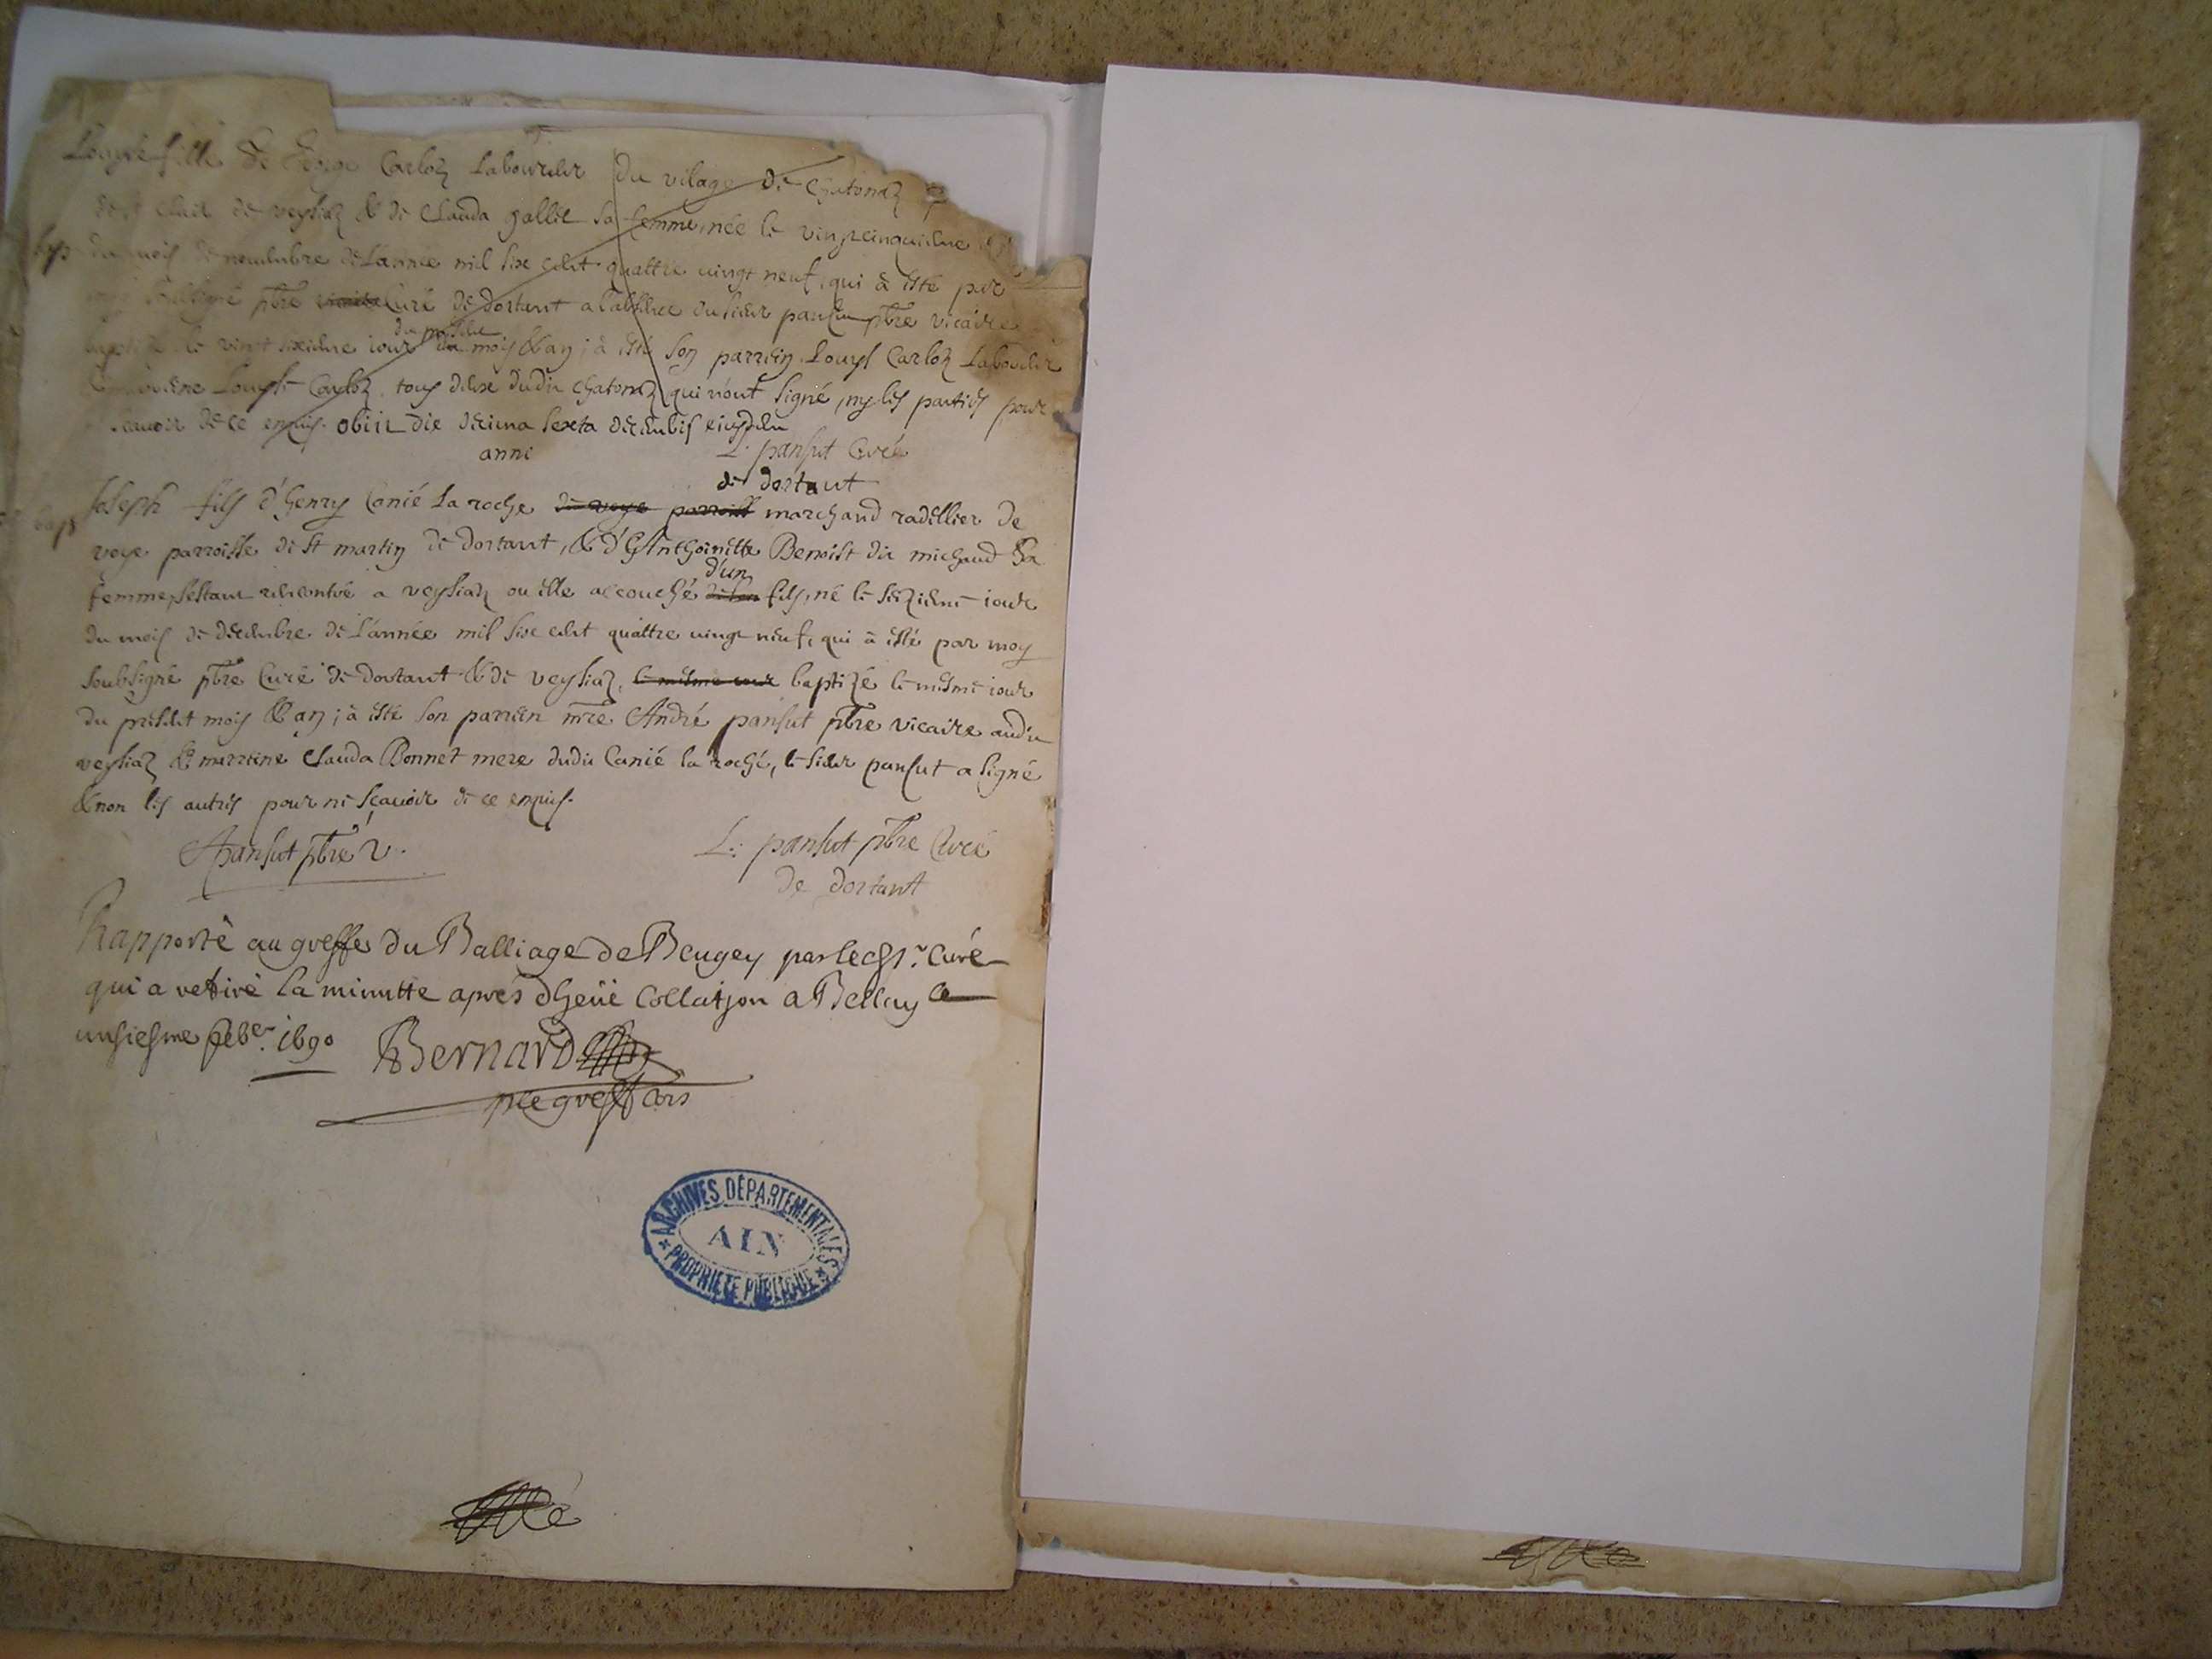 Louyse fille de Carloz Laboureur du vilage de Chatonaz
de veysiaz & de Clauda gallet sa femme, née le vingtcinquieme
bap
du mois de novembre de L'année mil six cent quattre vingt neuf, qui à esté par
pbre Curé de dortant a l'absence du sieur pansut pbre vicaire
le vint sixieme iour du mois & an ; à esté son parrein Louys Carloz Laboureur
Louyse Carloz, tous deux dudit Chatonaz qui n'ont signé, ny les parties pour
scavoir de ce enquis. obiit die decima sexta decembris eiusdem
anni
L. pansut Curé
de dortant
bap
Joseph fils d'henry Canié La roche marchand radellier de
veye parroisse de St martin de dortant, & d'Anthoinette Benoist dit michaud sa
femme, sestant rencontré a veysiaz ou elle accouché d'un fils, né le seizieme iour
du mois de decembre de L'année mil six cent quattre vingt neuf, qui à esté par moy
soubsigné pbre Curé de dortant & de veysiaz, le mesme iour baptizé le mesme iour
du present mois & an ; à esté son parrein mre André pansut pbre vicaire audit
veysiaz & marreine Clauda Bonnet mere dudit Canié la roche, le sieur pansut a signé
& non les autres pour ne scavoir de ce enquis.
Apansut pbre v.
L. pansut pbre Curé
de dortant
Rapporté au greffe du Balliage de Beugey par led sr. Curé
qui a retiré la minutte aprés dheüe Collation a Belley ce
unsiesme feber. 1690
Bernard
ARCHIVES DÉPARTEMENTALES
AIN
PROPRIÉTÉ PUBLIQUE